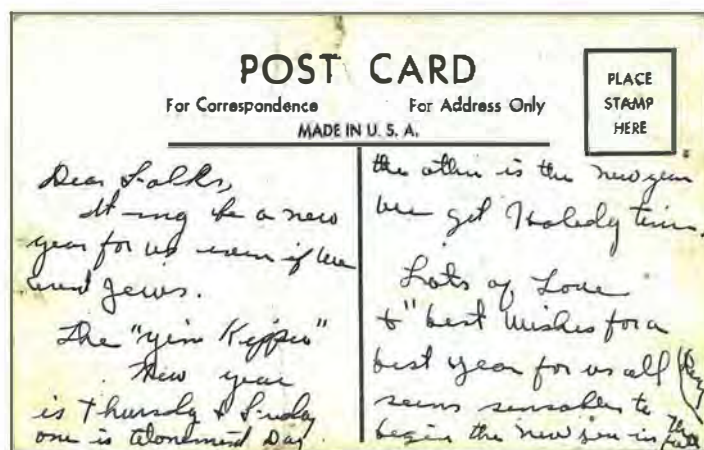 POST CARD
For Correspondence
For Address Only
MADE IN U. S. A.
PLACE
STAMP
HERE
Dear Folks,
It may be a new
year for us even if we
arent Jews.
The "Yim Kippu"
New year
is Thursdy & Friday
one is Atonement Day.
the other is the new year
we get Holedy time.
Lots of Love
& best wishes for a
best year for us all
seems sensable to
begin the new in